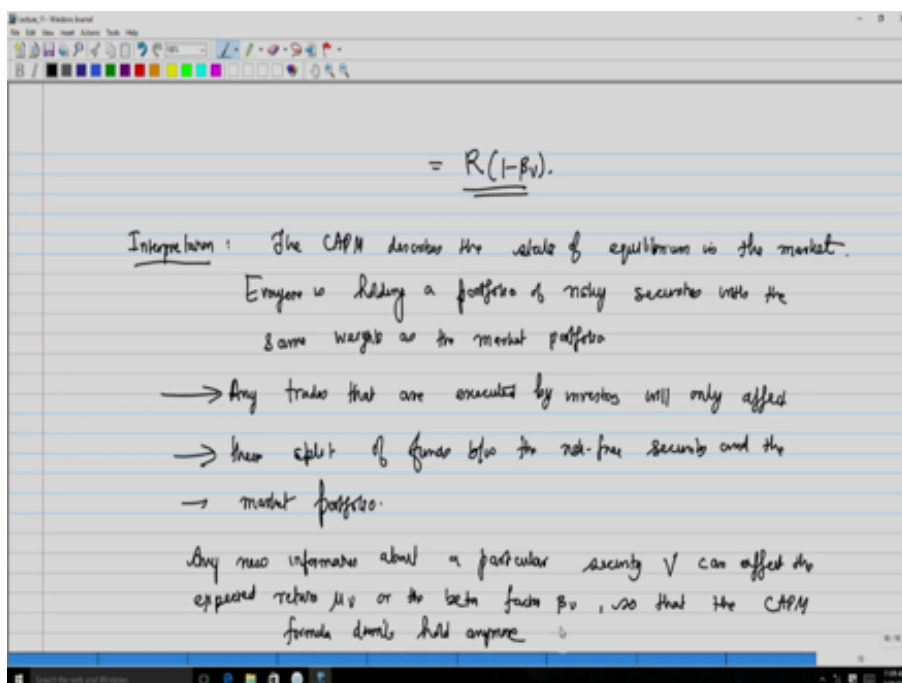 Lecture_11 - Windows Journal
File Edit View Insert Actions Tools Help
= R(1-βv).
Interpretation : The CAPM describes the state of equilibrium in the market.
Everyone is holding a portfolio of risky securities with the
same weights as the market portfolio
→ Any trades that are executed by investors will only affect
→ their split of funds b/w the risk-free security and the
→ market portfolio.
Any new information about a particular security V can affect the
expected return μv or the beta factor βv, so that the CAPM
formula doesn't hold anymore
Search the web and Windows